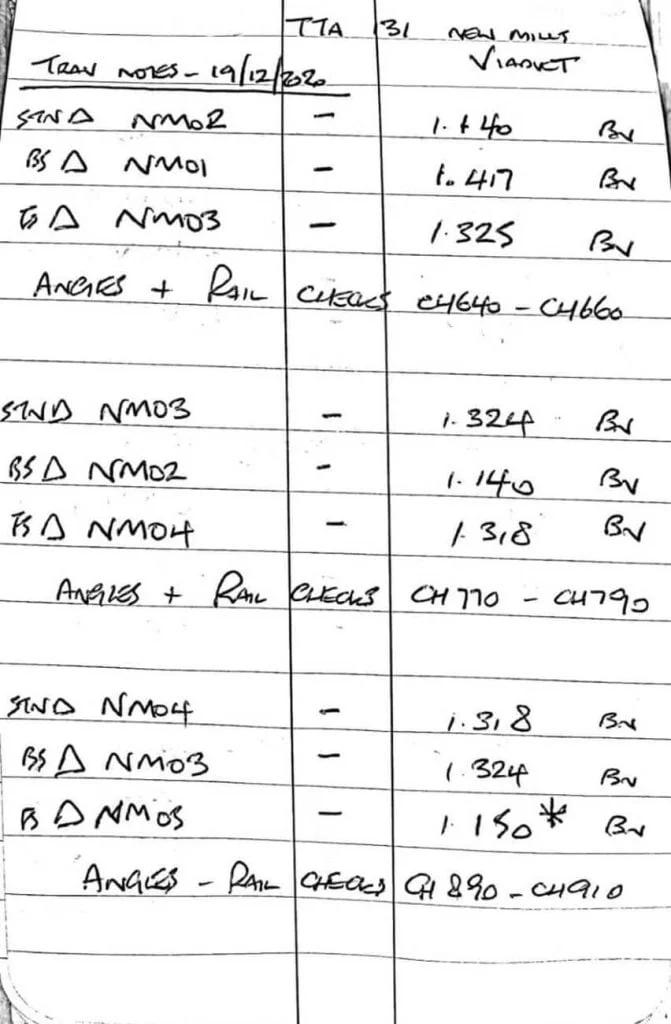 TTA 31 NEW MILLS
VIADUCT
TRAV NOTES - 19/12/2020
STN Δ NM02 - 1.140 BN
BS Δ NM01 - 1.417 BN
FS Δ NM03 - 1.325 BN
ANGLES + RAIL CHECKS CH640 - CH660
STN Δ NM03 - 1.324 BN
BS Δ NM02 - 1.140 BN
FS Δ NM04 - 1.318 BN
ANGLES + RAIL CHECKS CH770 - CH790
STN Δ NM04 - 1.318 BN
BS Δ NM03 - 1.324 BN
FS Δ NM05 - 1.150* BN
ANGLES - RAIL CHECKS CH890 - CH910